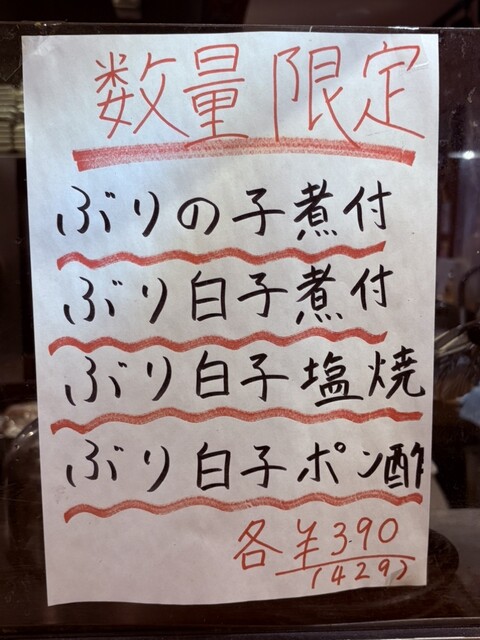 数量限定
ぶりの子煮付
ぶり白子煮付
ぶり白子塩焼
ぶり白子ポン酢
各¥390
(429)